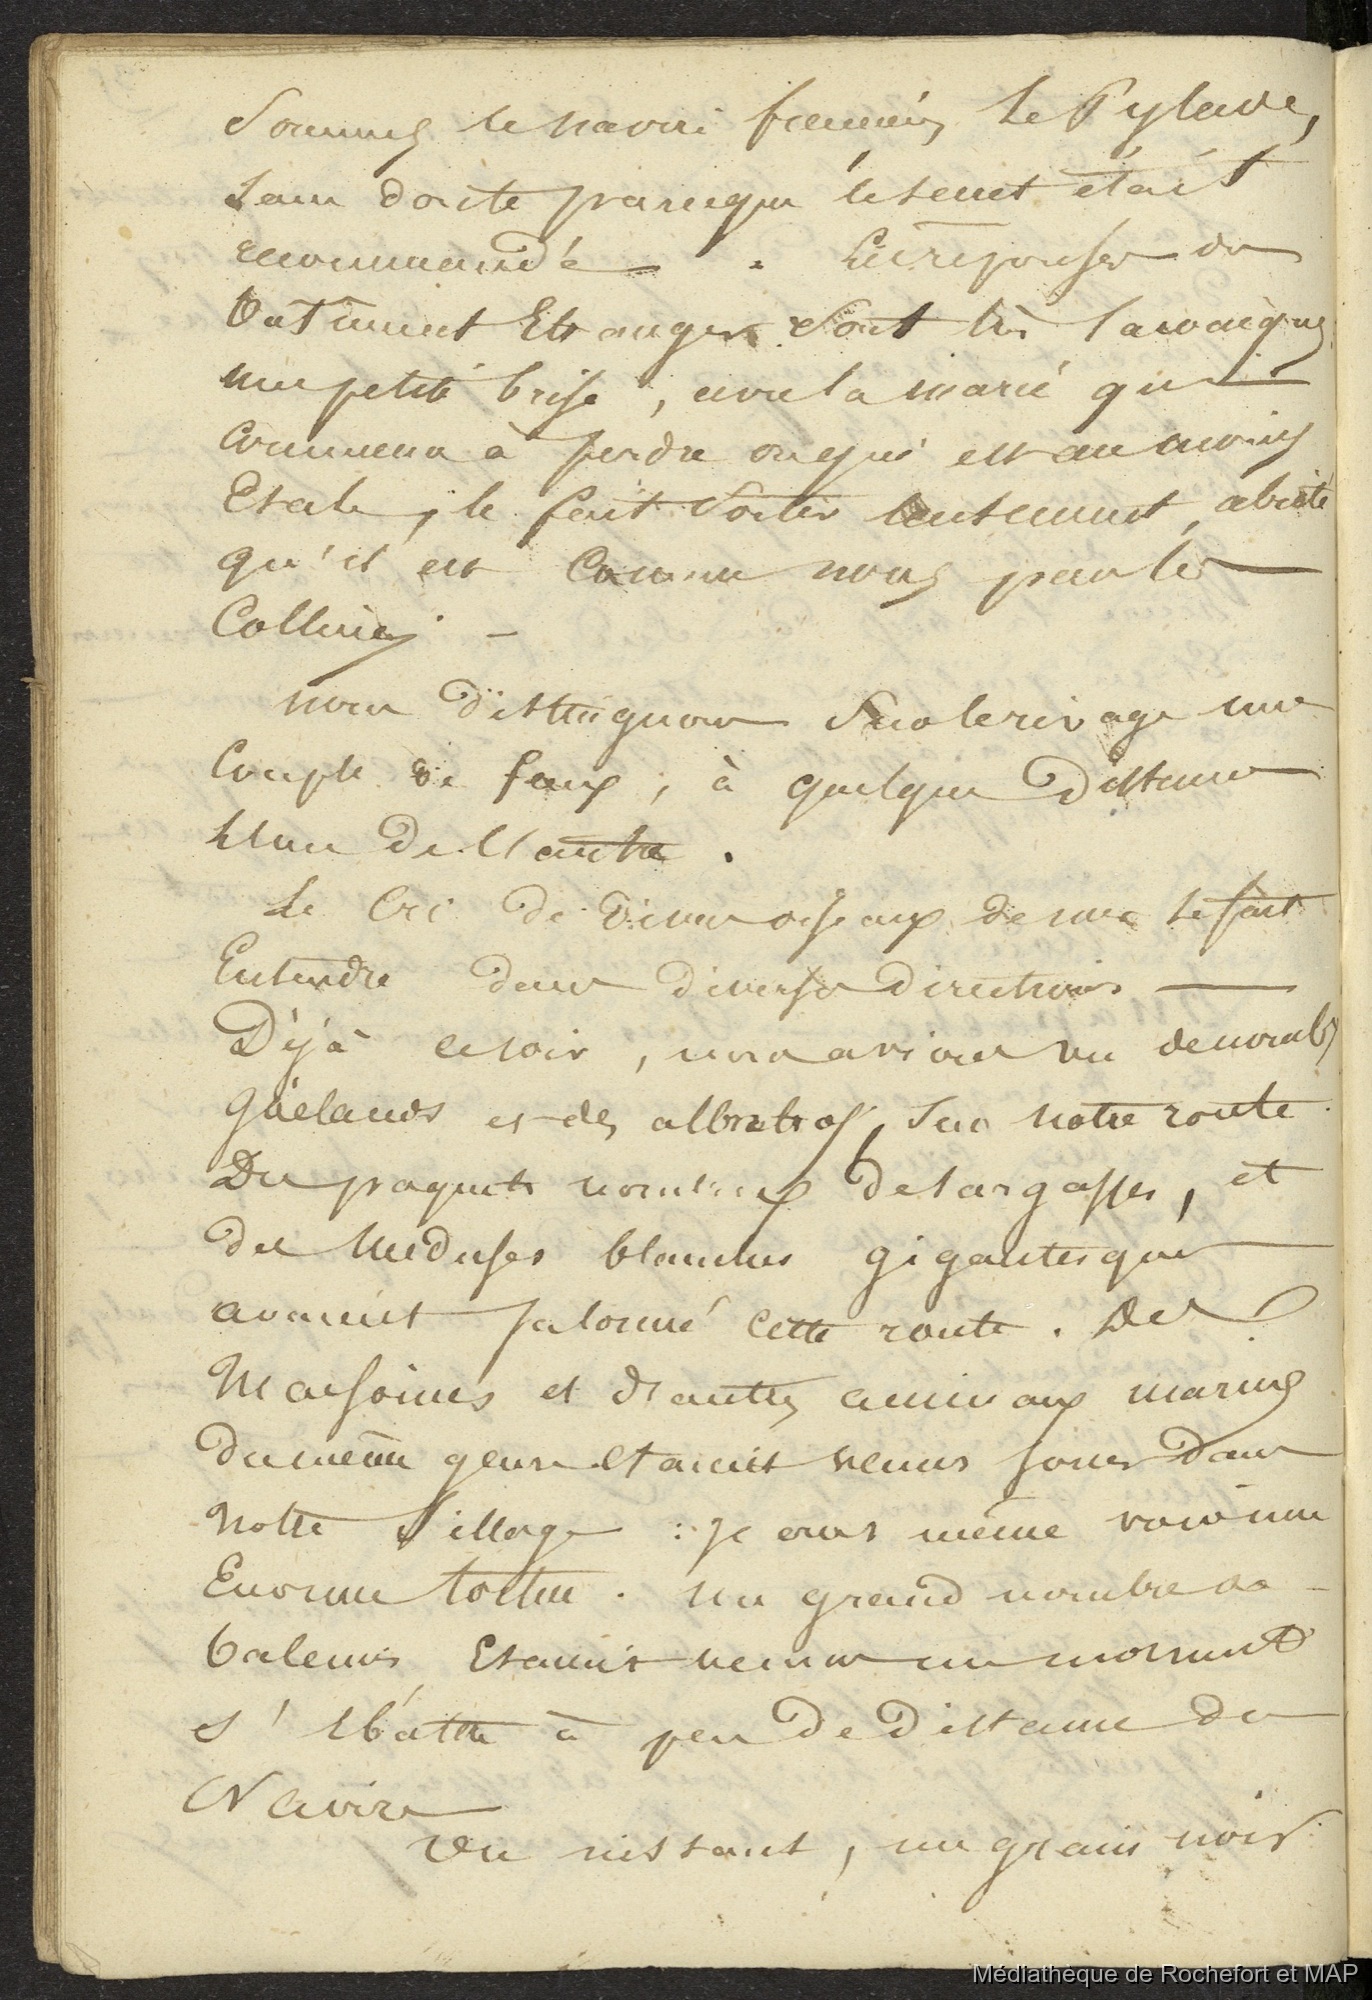 Sommes le navire français Le Pylade,
sans doute parceque le secret était
recommandé. Les réponses du
bâtiment Etranger sont très laconiques
une petite brise, avec la marée qui
commence à perdre ou qui est au moins
Etale, le fait sortir lentement, abrité
qu'il est comme nous par les
Collines –
nous distinguons sur le rivage une
Couple de feux, à quelque distance
l'un de l'autre.
Le Cri de divers oiseaux de mer se fait
Entendre dans diverses directions
Déjà ce soir, nous avions vu de nombx
Goëlands et des albatros, sur notre route
Des paquets nombreux de sargasses, et
des Méduses blanches gigantesques
avaient jalonné cette route. Des
Marsouins et d'autres animaux marins
du même genre étaient venus jouer dans
notre Sillage : je crus même voir une
Enorme tortue. Un grand nombre de
baleines Etaient venues un moment
s'ébattre à peu de distance du
Navire
Un instant, un grain noir